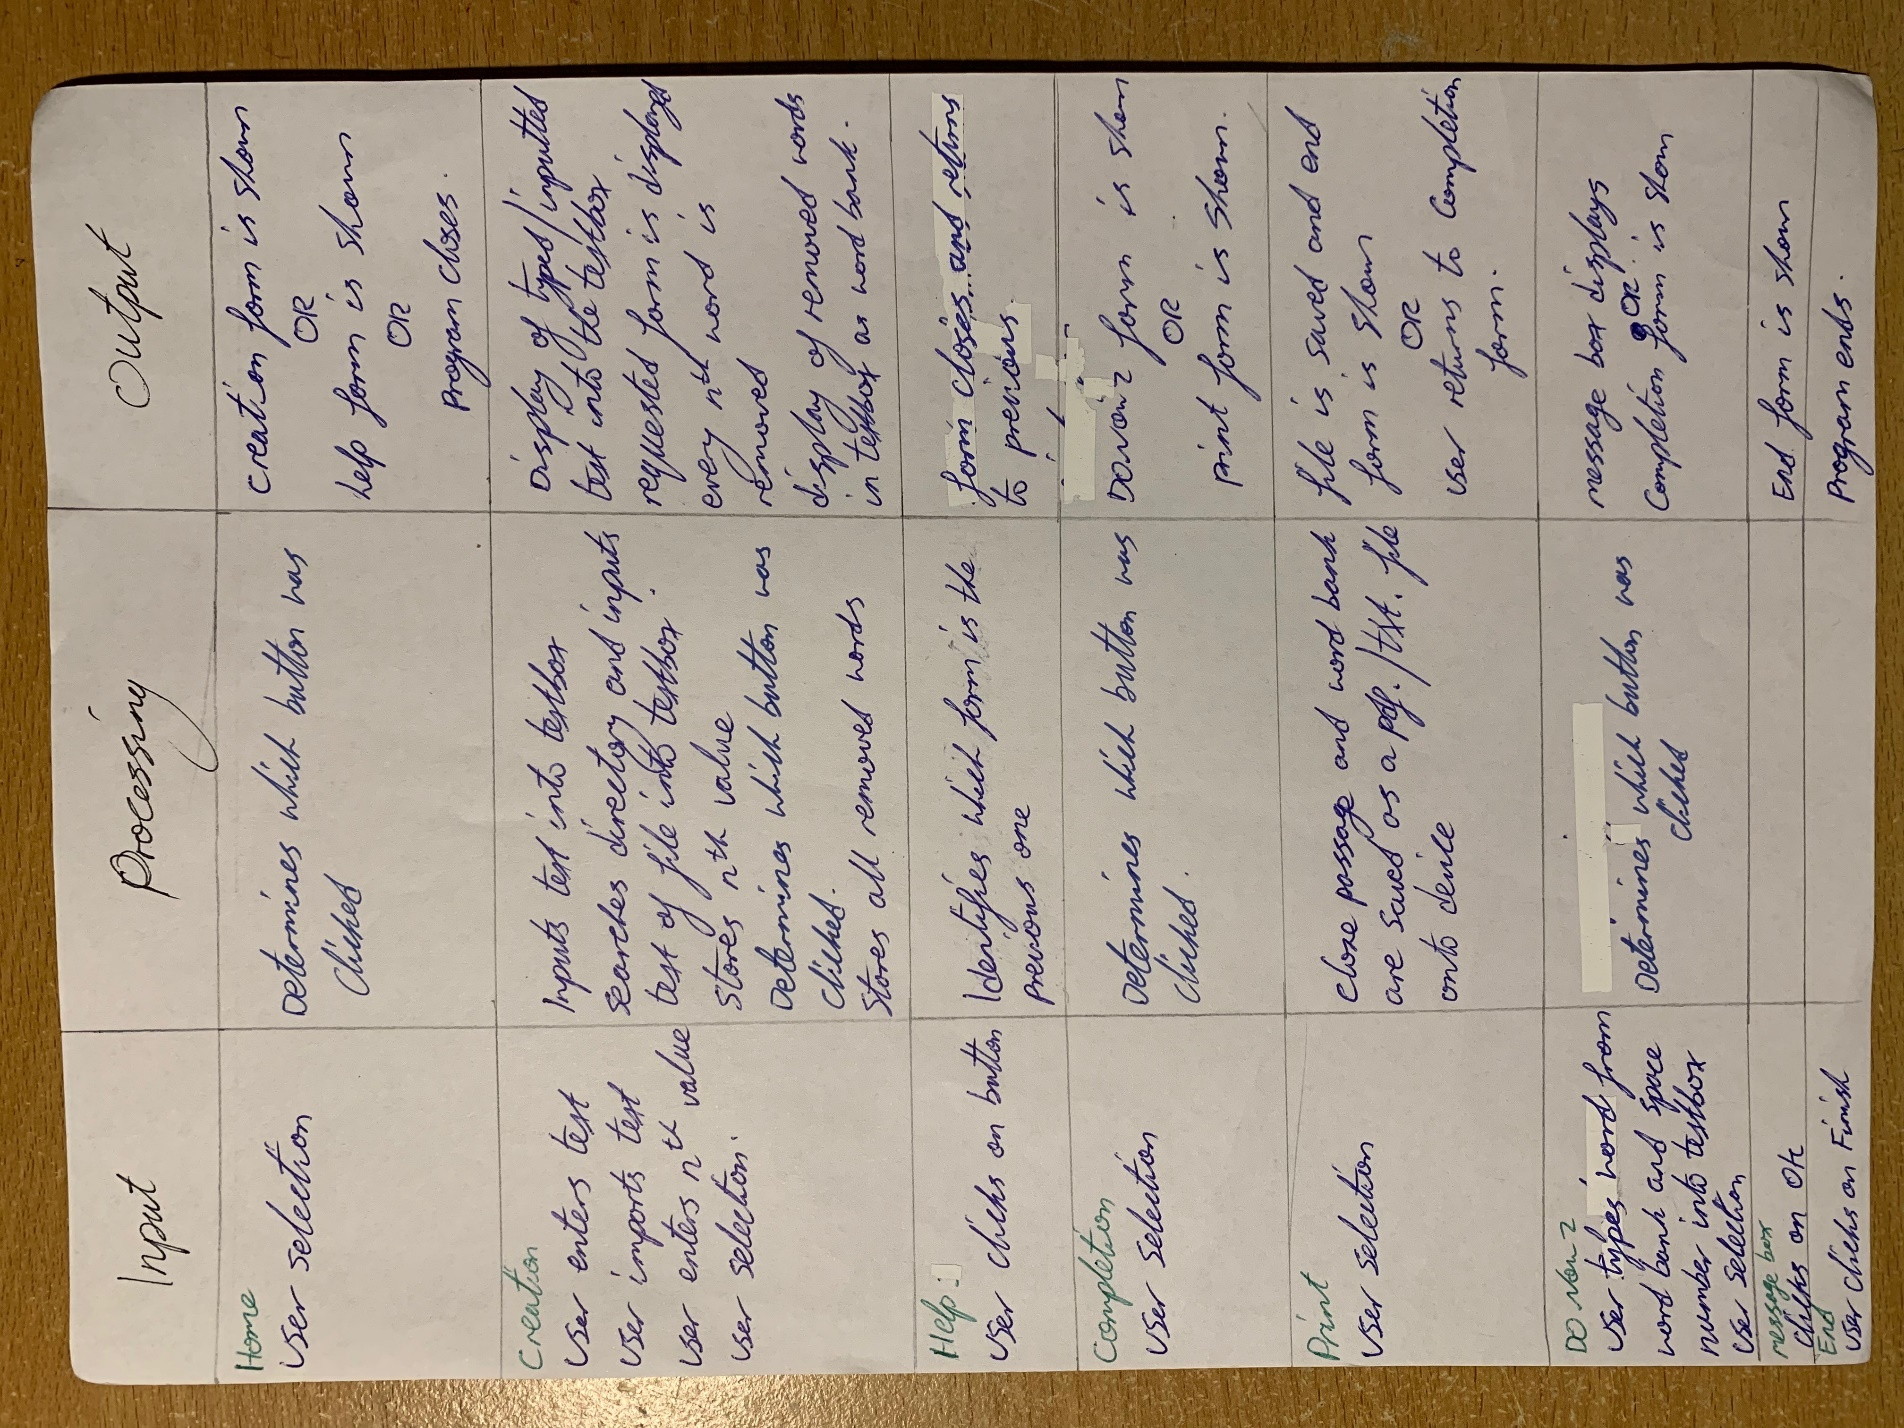 Input
Processing
Output
Home
User selection
Determines which button was
clicked
creation form is shown
OR
help form is shown
OR
Program closes.
Creation
User enters text
User imports text
User enters nth value
User selection.
Inputs text into textbox
searches directory and inputs
text of file into textbox.
Stores nth value
Determines which button was
clicked.
Stores all removed words
Display of typed/inputted
text into the textbox
requested form is displayed
every nth word is
removed
display of removed words
in textbox as word bank.
Help:
User clicks on button
Identifies which form is the
previous one
form closes and returns
to previous
Completion
User Selection
Determines which button was
clicked.
DO now 2 form is shown
OR
print form is shown.
Print
User selection
Cloze passage and word bank
are saved as a pdf./txt. file
onto device
file is saved and end
form is shown
OR
User returns to Completion
form.
DO Now 2
User types word from
word bank and space
number into textbox
User Selection
Determines which button was
clicked
message box displays
OR
Completion form is shown
message box
Clicks on OK
End form is shown
End
User clicks on Finish
Program ends.